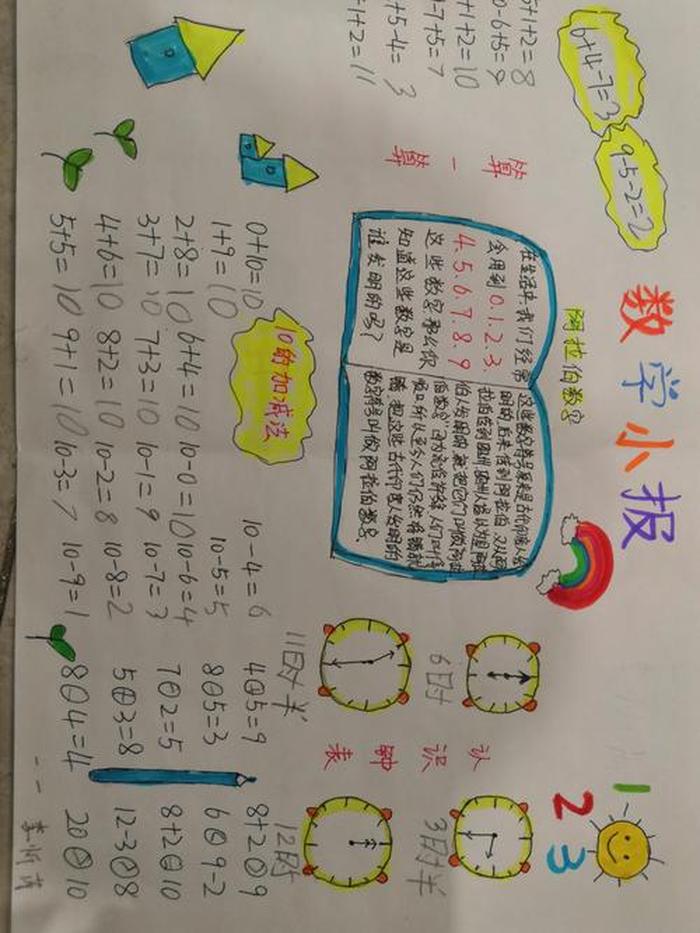 数学小报
1 2 3
6+4-7=3
9-5-2=2
阿拉伯数字
+1+2=8
-6+5=9
+1+2=10
-7+5=7
+5-4=3
+1+2=11
算一算
在生活中,我们经常
会用到0.1.2.3.
4.5.6.7.8.9
这些数字那么你
知道这些数字是
谁发明的吗?
这些数字符号原来是古代印度人发
明的后来传到阿拉伯 又从阿
拉伯传到欧洲,欧洲人误认为是阿拉
伯人发明的 就把它们叫做阿拉
伯数字 因为流传许多年 人们叫得
顺口所以至今人们仍然将错就
错 把这些古代印度人发明的
数字符号叫做阿拉伯数字.
认识钟表
6时
3时半
11时半
12时
10的加减法
0+10=10 10-4=6
1+9=10 10-5=5
2+8=10 6+4=10 10-0=10 10-6=4
3+7=10 7+3=10 10-1=9 10-7=3
4+6=10 8+2=10 10-2=8 10-8=2
5+5=10 9+1=10 10-3=7 10-9=1
4⊕5=9 8+2 9
8⊖5=3 6 9-2
7⊖2=5 8+2 10
5⊕3=8 12-3 8
8⊖4=4 20 10